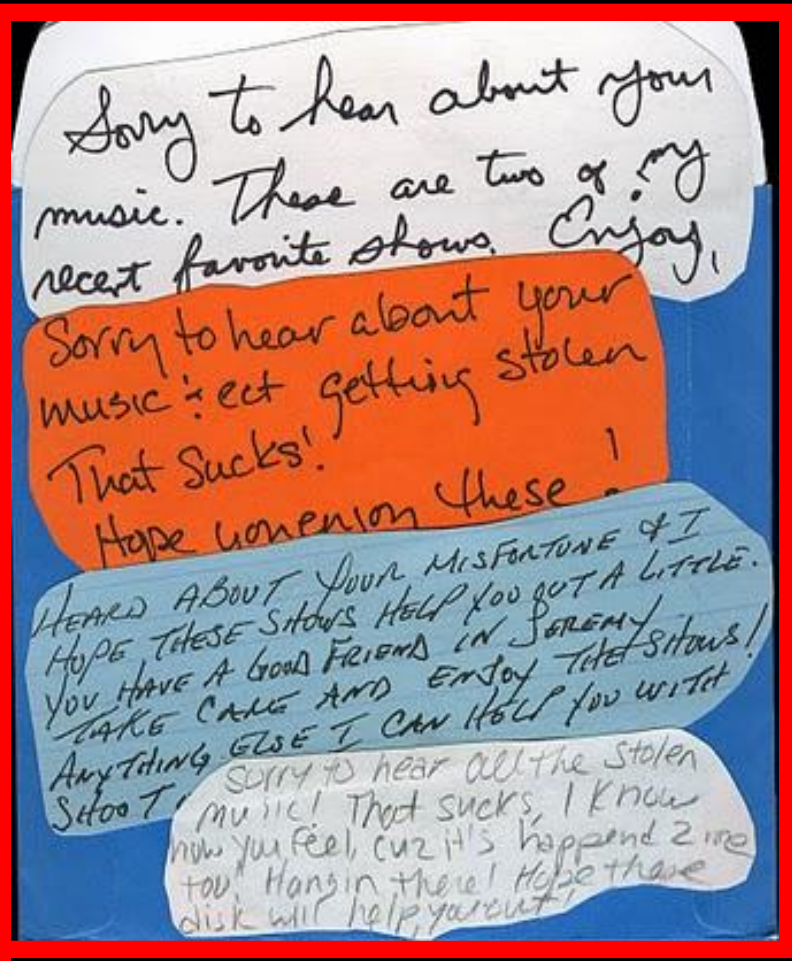 Sorry to hear about your
music. These are two of my
recent favorite shows. Enjoy,
Sorry to hear about your
music & ect getting stolen
That Sucks!
Hope you enjoy these !
HEARD ABOUT YOUR MISFORTUNE & I
HOPE THESE SHOWS HELP YOU OUT A LITTLE.
YOU HAVE A GOOD FRIEND IN JEREMY
TAKE CARE AND ENJOY THE SHOWS!
ANYTHING ELSE I CAN HELP YOU WITH
SHOOT
Sorry to hear all the stolen
music! That sucks, I know
how you feel, cuz it's happend 2 me
too! Hang in there! Hope these
disk will help you out!